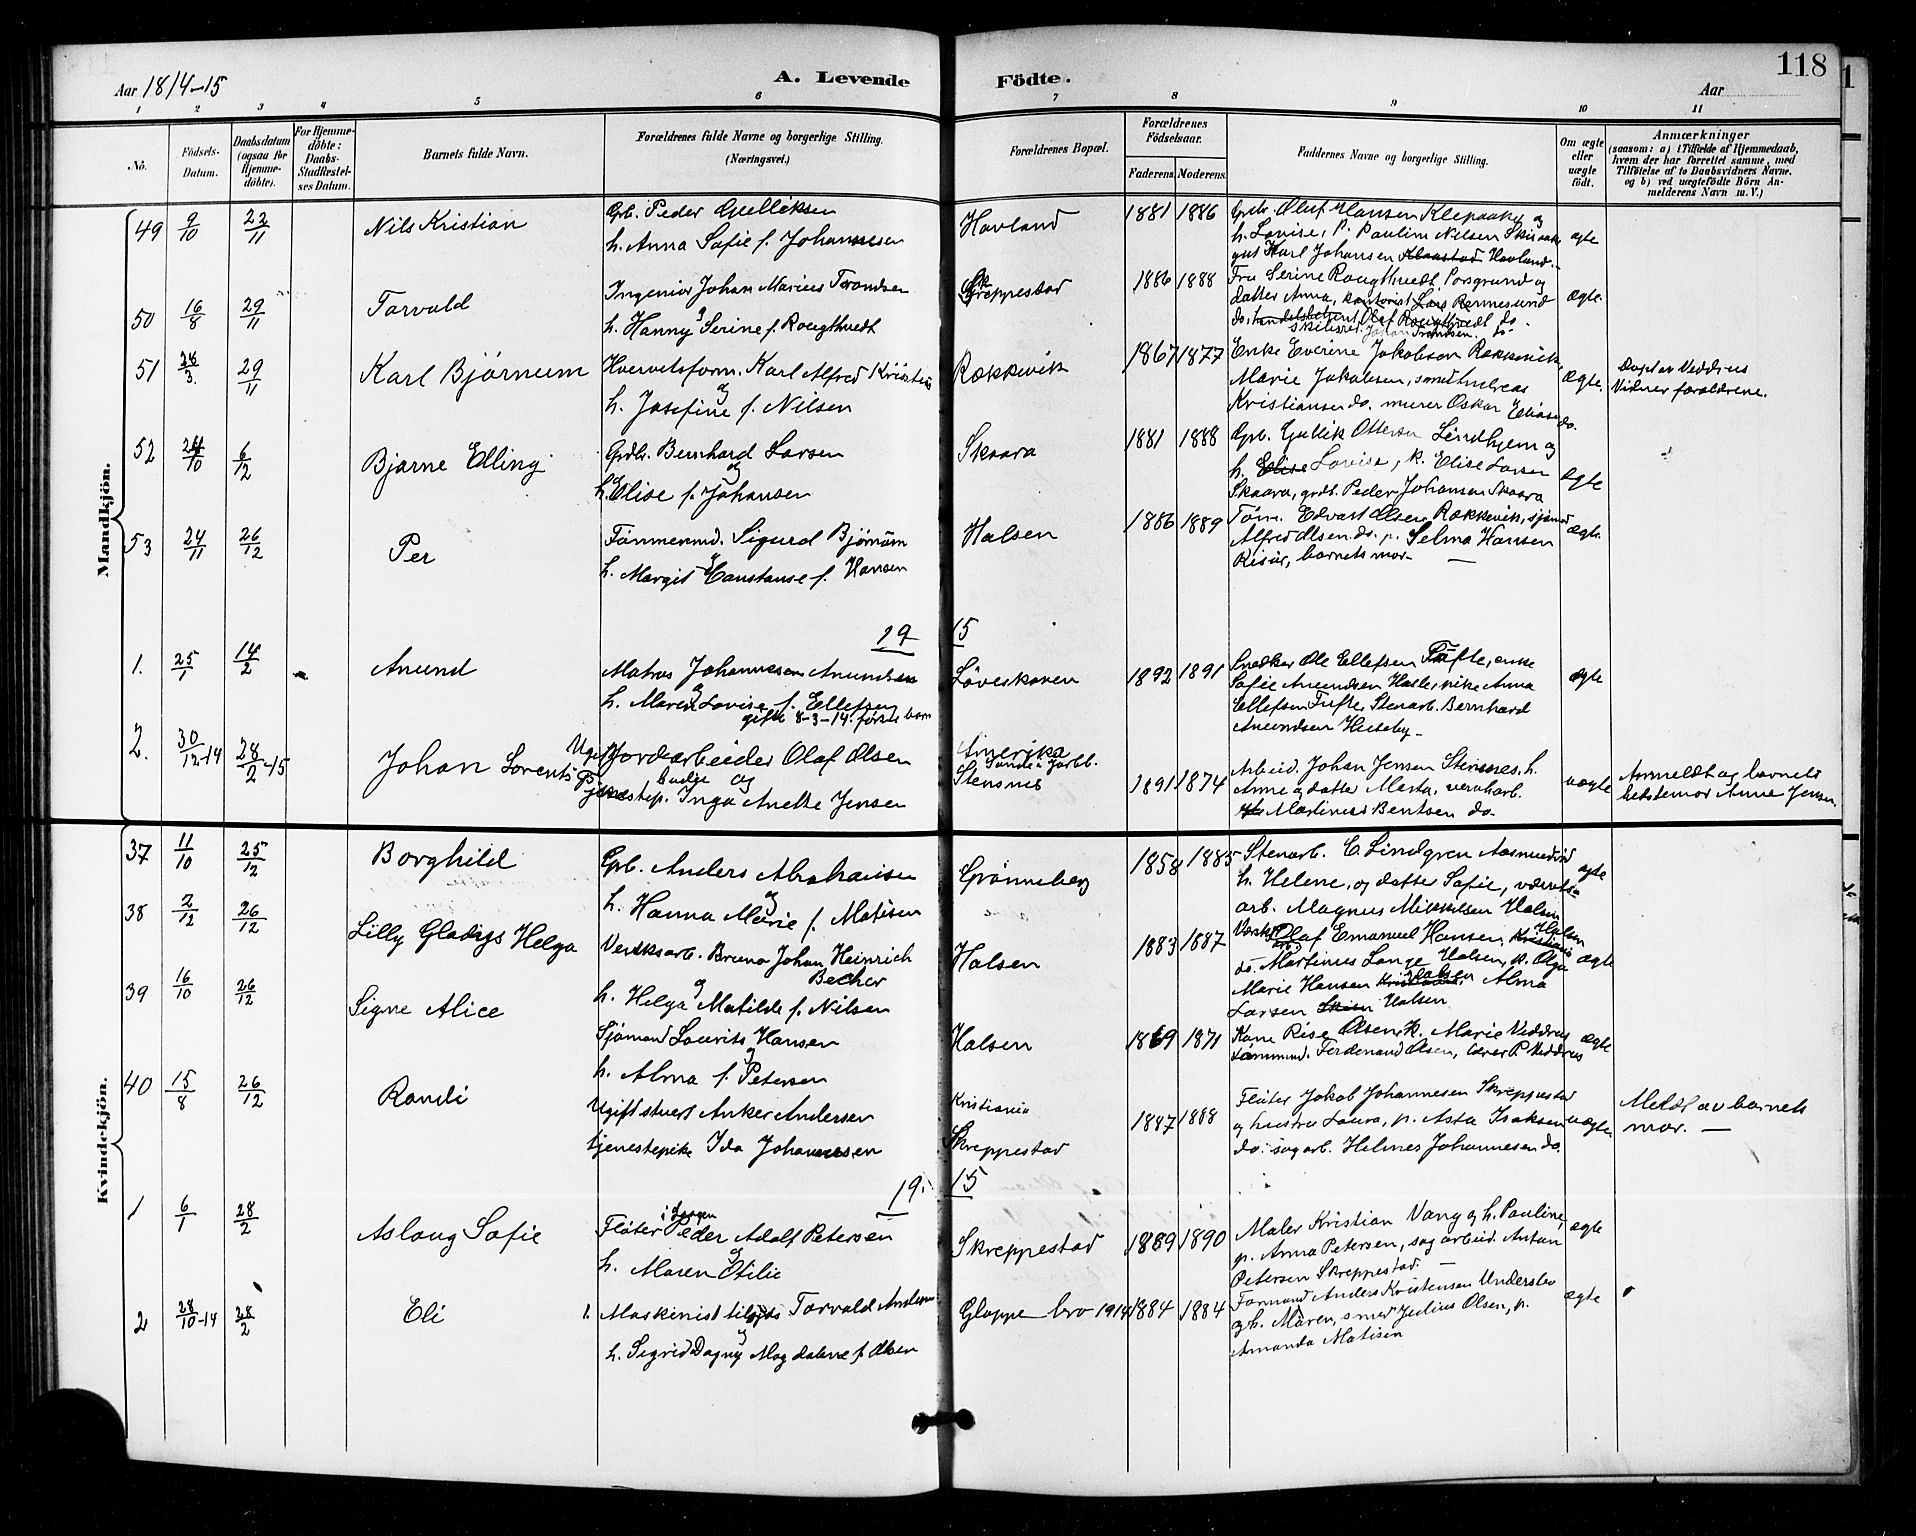 118
Aar 1914-15
A. Levende
Födte.
Aar
1 2 3 4 5 6 7 8 9 10 11
No.
Födsels-Datum.
Daabsdatum (ogsaa for Hjemme-döbte).
For Hjemme-döbte: Daabs-Stadfæstel-ses Datum.
Barnets fulde Navn.
Forældrenes fulde Navne og borgerlige Stilling. (Næringsvei.)
Forældrenes Bopæl.
Forældrenes Födselsaar.
Faderens. Moderens.
Faddernes Navne og borgerlige Stilling.
Om ægte eller uægte födt.
Anmærkninger
(saasom: a) i Tilfælde af Hjemmedaab,
hvem der har forrettet samme, med
Tilföielse af to Daabsvidners Navne.
og b) ved uægtefödte Börn An-
melderens Navn m. V.)
Mandkjön.
49 9/10 23/11 Nils Kristian
Grb. Peder Gulliksen
h. Anna Sofie f. Johannesen
Havland 1881 1886
Grdb. Oluf Hansen Klepaaker og
h. Lovise, p. Pauline Nilsen
gut Karl Johansen Klaastad Hovland.
ægte
50 16/8 29/11 Torvald
Ingeniør Johan Marius Trondsen
og
h. Hanny Serine f. Rougthvedt
Skreppestad 1886 1888
Fru Serine Rougthvedt, Porsgrund og
datter Anna, kontorist Lars Rennesund
do, handelsbetjent Olaf Rougthvedt do.
Johan Trondsen. do
ægte.
51 28/3. 29/11 Karl Bjørnum
Karl Alfred
og
h. Josefine f. Nilsen
Rækkevik 1867 1877
Enke Everine Jakobsen Rækkevik,
Marie Jakobsen, smed Andreas
Kristiansen do. murer Oskar Eliasen do.
ægte.
Døpt av Veddrus
Vidner forældrene.
52 24/10 6/12 Bjarne Elling
Grdb. Bernhard Larsen
og
h. Elise f. Johansen
Skaara 1881 1888
Grb. Gullik Ottersen Lindhjem og
h. Elise Lovise, p. Elise Larsen
Skaara, grdb. Peder Johansen Skaara
ægte
53 24/11 26/12 Per
Tømmermd. Sigurd Bjørnum
h. Margit Constanse f. Hansen
Halsen 1886 1889
Tøm. Edvart Olsen Rækkevik, sjømd
Alfred Olsen do. p. Selma Hansen
Risør, barnets mor. —
ægte
19 15
1. 25/1 14/2 Anund
Matros Johannesen Anundsen
og
h. Maren Lovise f. Ellefsen
gifte 8-3-14. første barn
Løveskoven 1892 1891
Snedker Ole Ellefsen Tufte, enke
Sofie Anundsen Hasle, pike Anna
Ellefsen Tufte, Stenarb. Bernhard
Anundsen Huseby —
ægte
2. 30/12-14 28/2-15 Johan Lorents
Ugift Jordarbeider Olaf Olsen
og
Tjenestep. Inga Anette Jensen
Amerika
Stensnes
1891 1874
Arbeid. Johan Jensen Stensnes, h.
Anne og datter Marta, verksarb.
Martinius Bentsen do.
uægte
Anmeldt av barnets
bestemor Anne Jensen.
Kvindekjön.
37 11/10 25/12 Borghild
Grb. Anders Abrahamsen
og
h. Hanna Marie f. Matisen
Grønneberg 1858 1885
Stenarb. C. Lindgren Aasmundrød
h. Helene, og datter Sofie, værksts-
arb. Magnus Mikkelsen Halsen
ægte
38 2/12 26/12 Lilly Gladys Helga
Verksarb. Bruno Johan Heinrich
Becher
og
h. Helga Matilde f. Nilsen
Halsen 1883 1887
Olaf Emanuel Hansen, Kristiania Halsen
do. Martinius Lange Halsen, p. Olga
Marie Hansen Halsen, Alma
Larsen Skien Halsen
ægte
39 16/10 26/12 Signe Alice
Sjømand Laurits Hansen
og
h. Alma f. Petersen
Halsen 1869 1871
Kone Rise Olsen, k. Marie Veddrus
tømmermd. Ferdenand Olsen, lærer P. Veddrus
ægte
40 15/8 26/12 Randi
Ugift stuert Anker Andersen
tjenestepike Ida Johannesen
Kristiania
Skreppestad
1887 1888
Fløter Jakob Johannesen Skreppestad
og hustru Laura, p. Asta Isaksen
do. sagarb. Helmer Johannesen do.
uægte.
Meldt av barnets
mor. —
19. 15
1 6/1 28/2 Aslaug Sofie
Fløter Peder Adolf Petersen
og
h. Maren Otilie
Skreppestad 1889 1890
Maler Kristian Vang og h. Pauline,
p. Anna Petersen, sagarbeid. Anton
Petersen Skreppestad. —
ægte
2 28/10-14 28/2 Eli
1. Maskinist tilsjøs Torvald Andersen
og
h. Sigrid Dagny Magdalene f. Olsen
Gloppe bro 1914 1884 1884
Formand Anders Kristensen Undersbo
og h. Maren, smed Julius Olsen, p.
Amanda Matisen
ægte